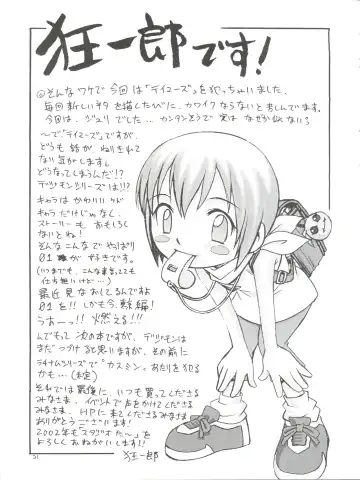 狂一郎です!
◎そんなワケで今回は「テイマーズ」を犯っちゃいました。
毎回新しいネタを描くたびに、カワイクならないと苦しんでます。
今回は、ジュリでした… カンタンそうで実はなぜか似ない?
〜で「テイマーズ」ですが、
どうも話がねりきれて
ない気がします。
どうなってしまうんだ!?
デジモンシリーズは!!?
キャラはかわいいけど
キャラだけじゃなく、
ストーリーもおもしろく
ないとね!
そんなこんなでやっぱり
01が好きです。
(いつまでも、こんな事言ってても
仕方無いけど…)
最近見なおしてるんですよ
01を!! しかも今、東京編!
うおーっ!! 燃える!!!
んでもって次の本ですが、デジモンは
まだつづけると思いますが、その前に
ラチナムシリーズで「カスミン」あたりを犯る
かも…(未定)
それでは最後に、いつも買ってくださる
みなさま、イベントで声をかけてくださる
みなさま、HPに来てくださるみなさま
ありがとうございます!
2002年もスタジオた〜」を
よろしくおねがいします!!
狂一郎
31